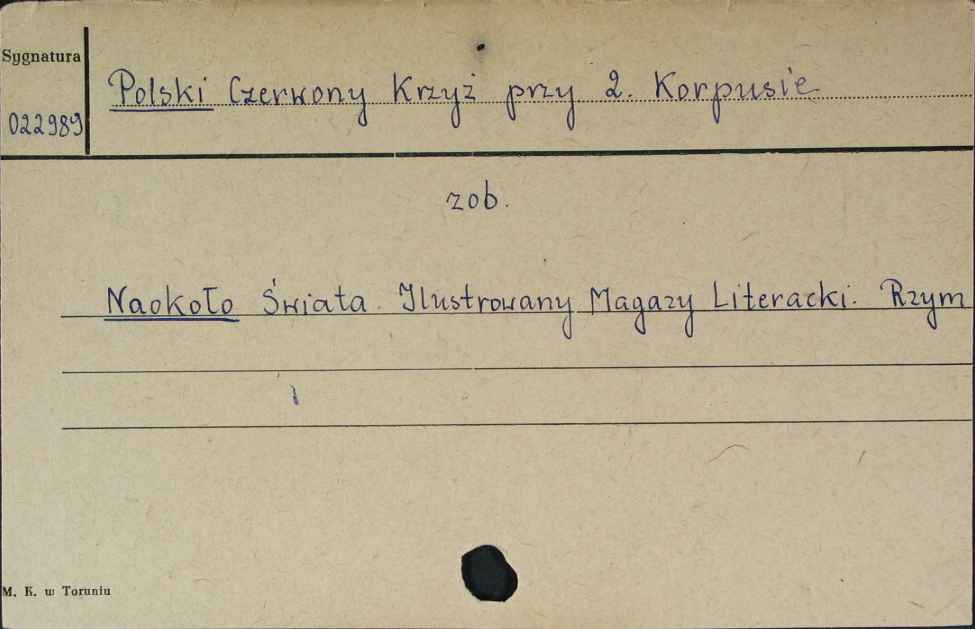 Sygnatura
Polski Czerwony Krzyż przy 2. Korpusie
022989
zob.
Naokoło Świata. Ilustrowany Magazy Literacki. Rzym
M. K. w Toruniu